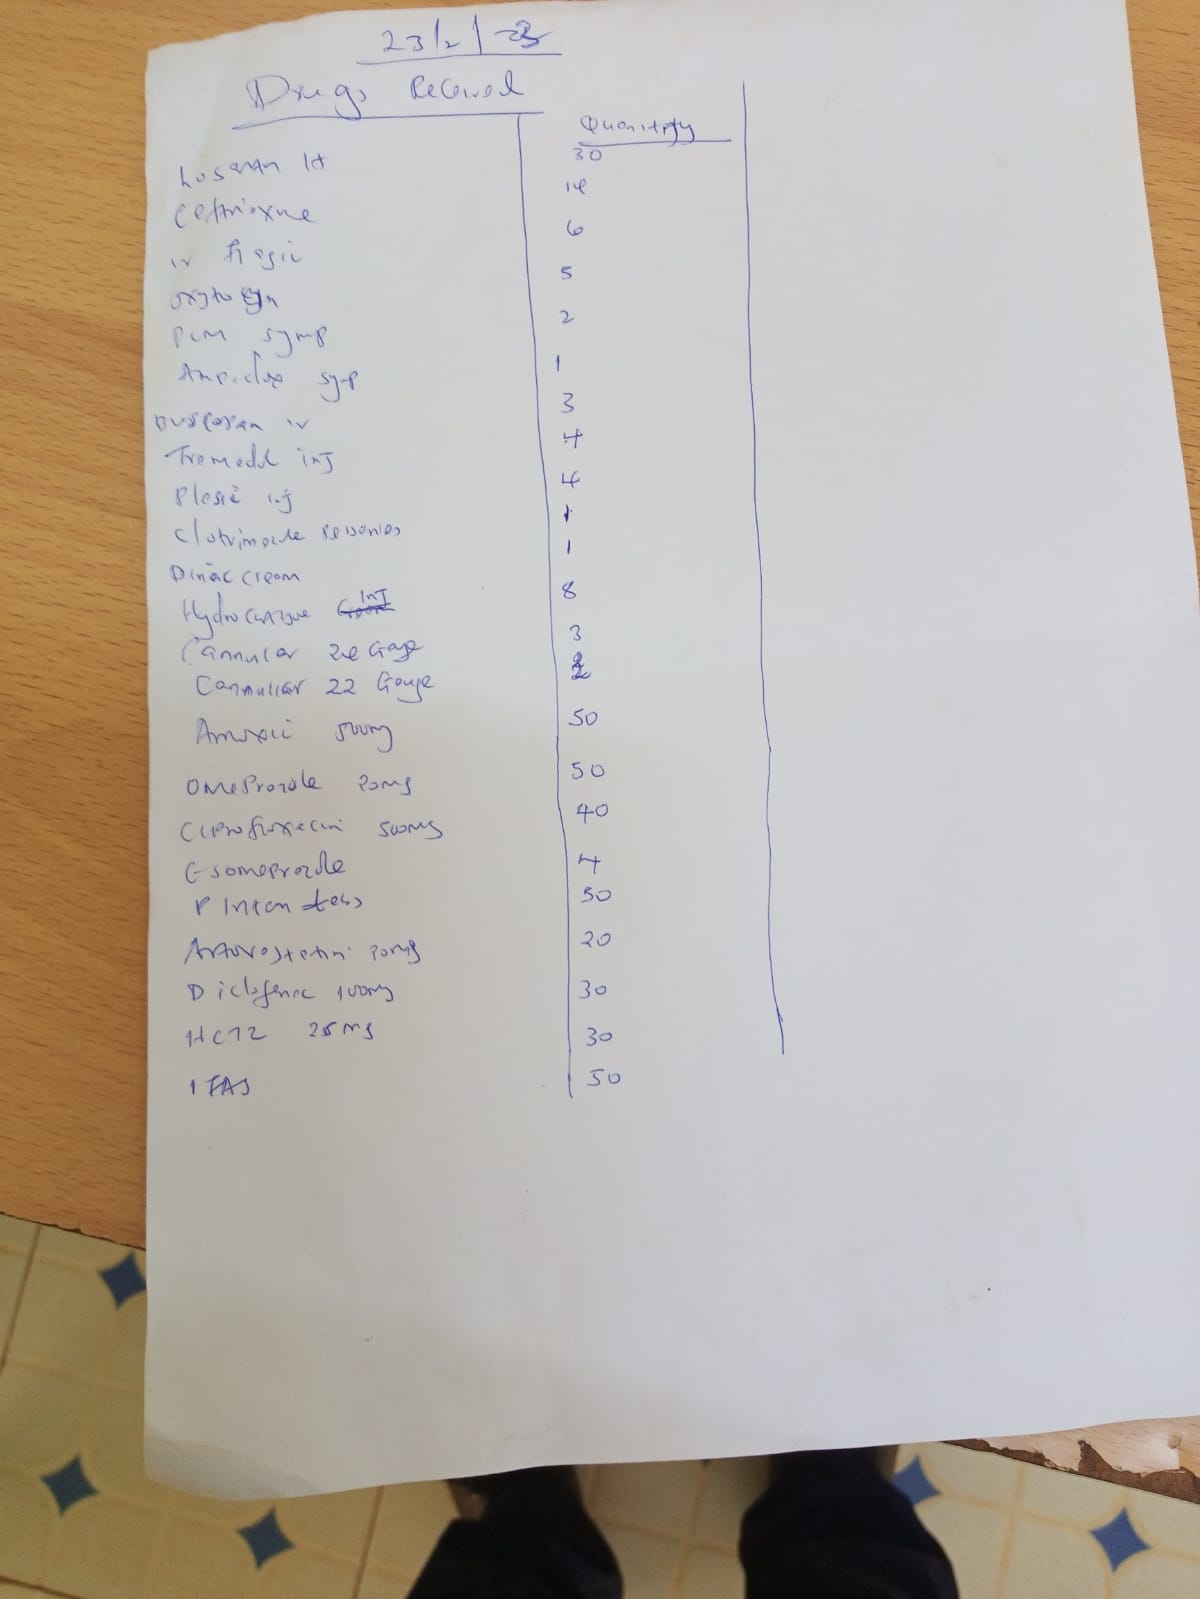 23/2/23
Drugs Received
Quantity
Losartan H 30
Ceftrioxne 14
iv Flagic 6
oxytocyn 5
PCM Syrup 2
Ampiclox syrup 1
Buscopan iv 3
Tramadol inj 4
Plasic inj 4
Clotrimazole 1
Dinac cream 1
Hydrocortisone InJ 8
Cannular 24 Gauge 3
Cannular 22 Gauge 2
Amoxic 500mg 50
Omeprazole 20mg 50
Ciprofloxacin 500mg 40
Esomeprazole 4
50
20mg 20
Diclofenac 100mg 30
HCTZ 25mg 30
IFAS 50